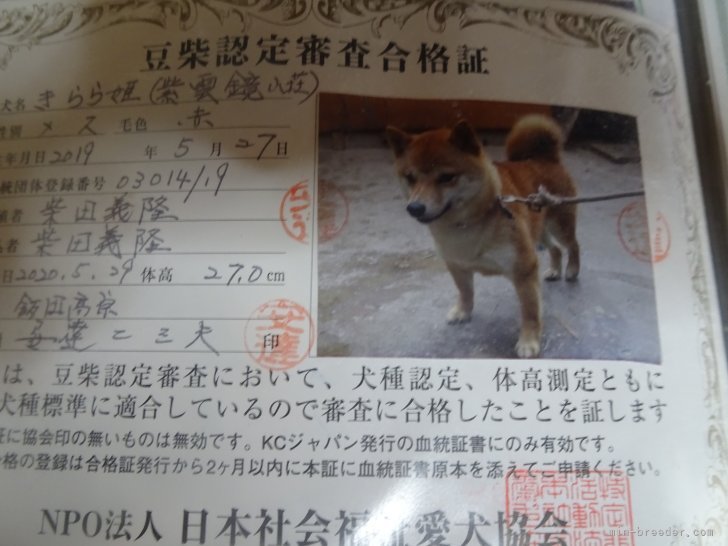 豆柴認定審査合格証
犬名 きらら姫(紫雲鏡山荘)
性別 メス 毛色 赤
年月日 2019 年 5 月 27日
統団体登録番号 03014/19
者 柴田義隆
者 柴田義隆
日 2020.5.29 体高 27.0 cm
飯田高京
安達二三夫 印
は、豆柴認定審査において、犬種認定、体高測定ともに
犬種標準に適合しているので審査に合格したことを証します
証に協会印の無いものは無効です。KCジャパン発行の血統証書にのみ有効です。
合格の登録は合格証発行から2ヶ月以内に本証に血統証書原本を添えてご申請ください。
NPO法人 日本社会福祉愛犬協会
min-breeder.com